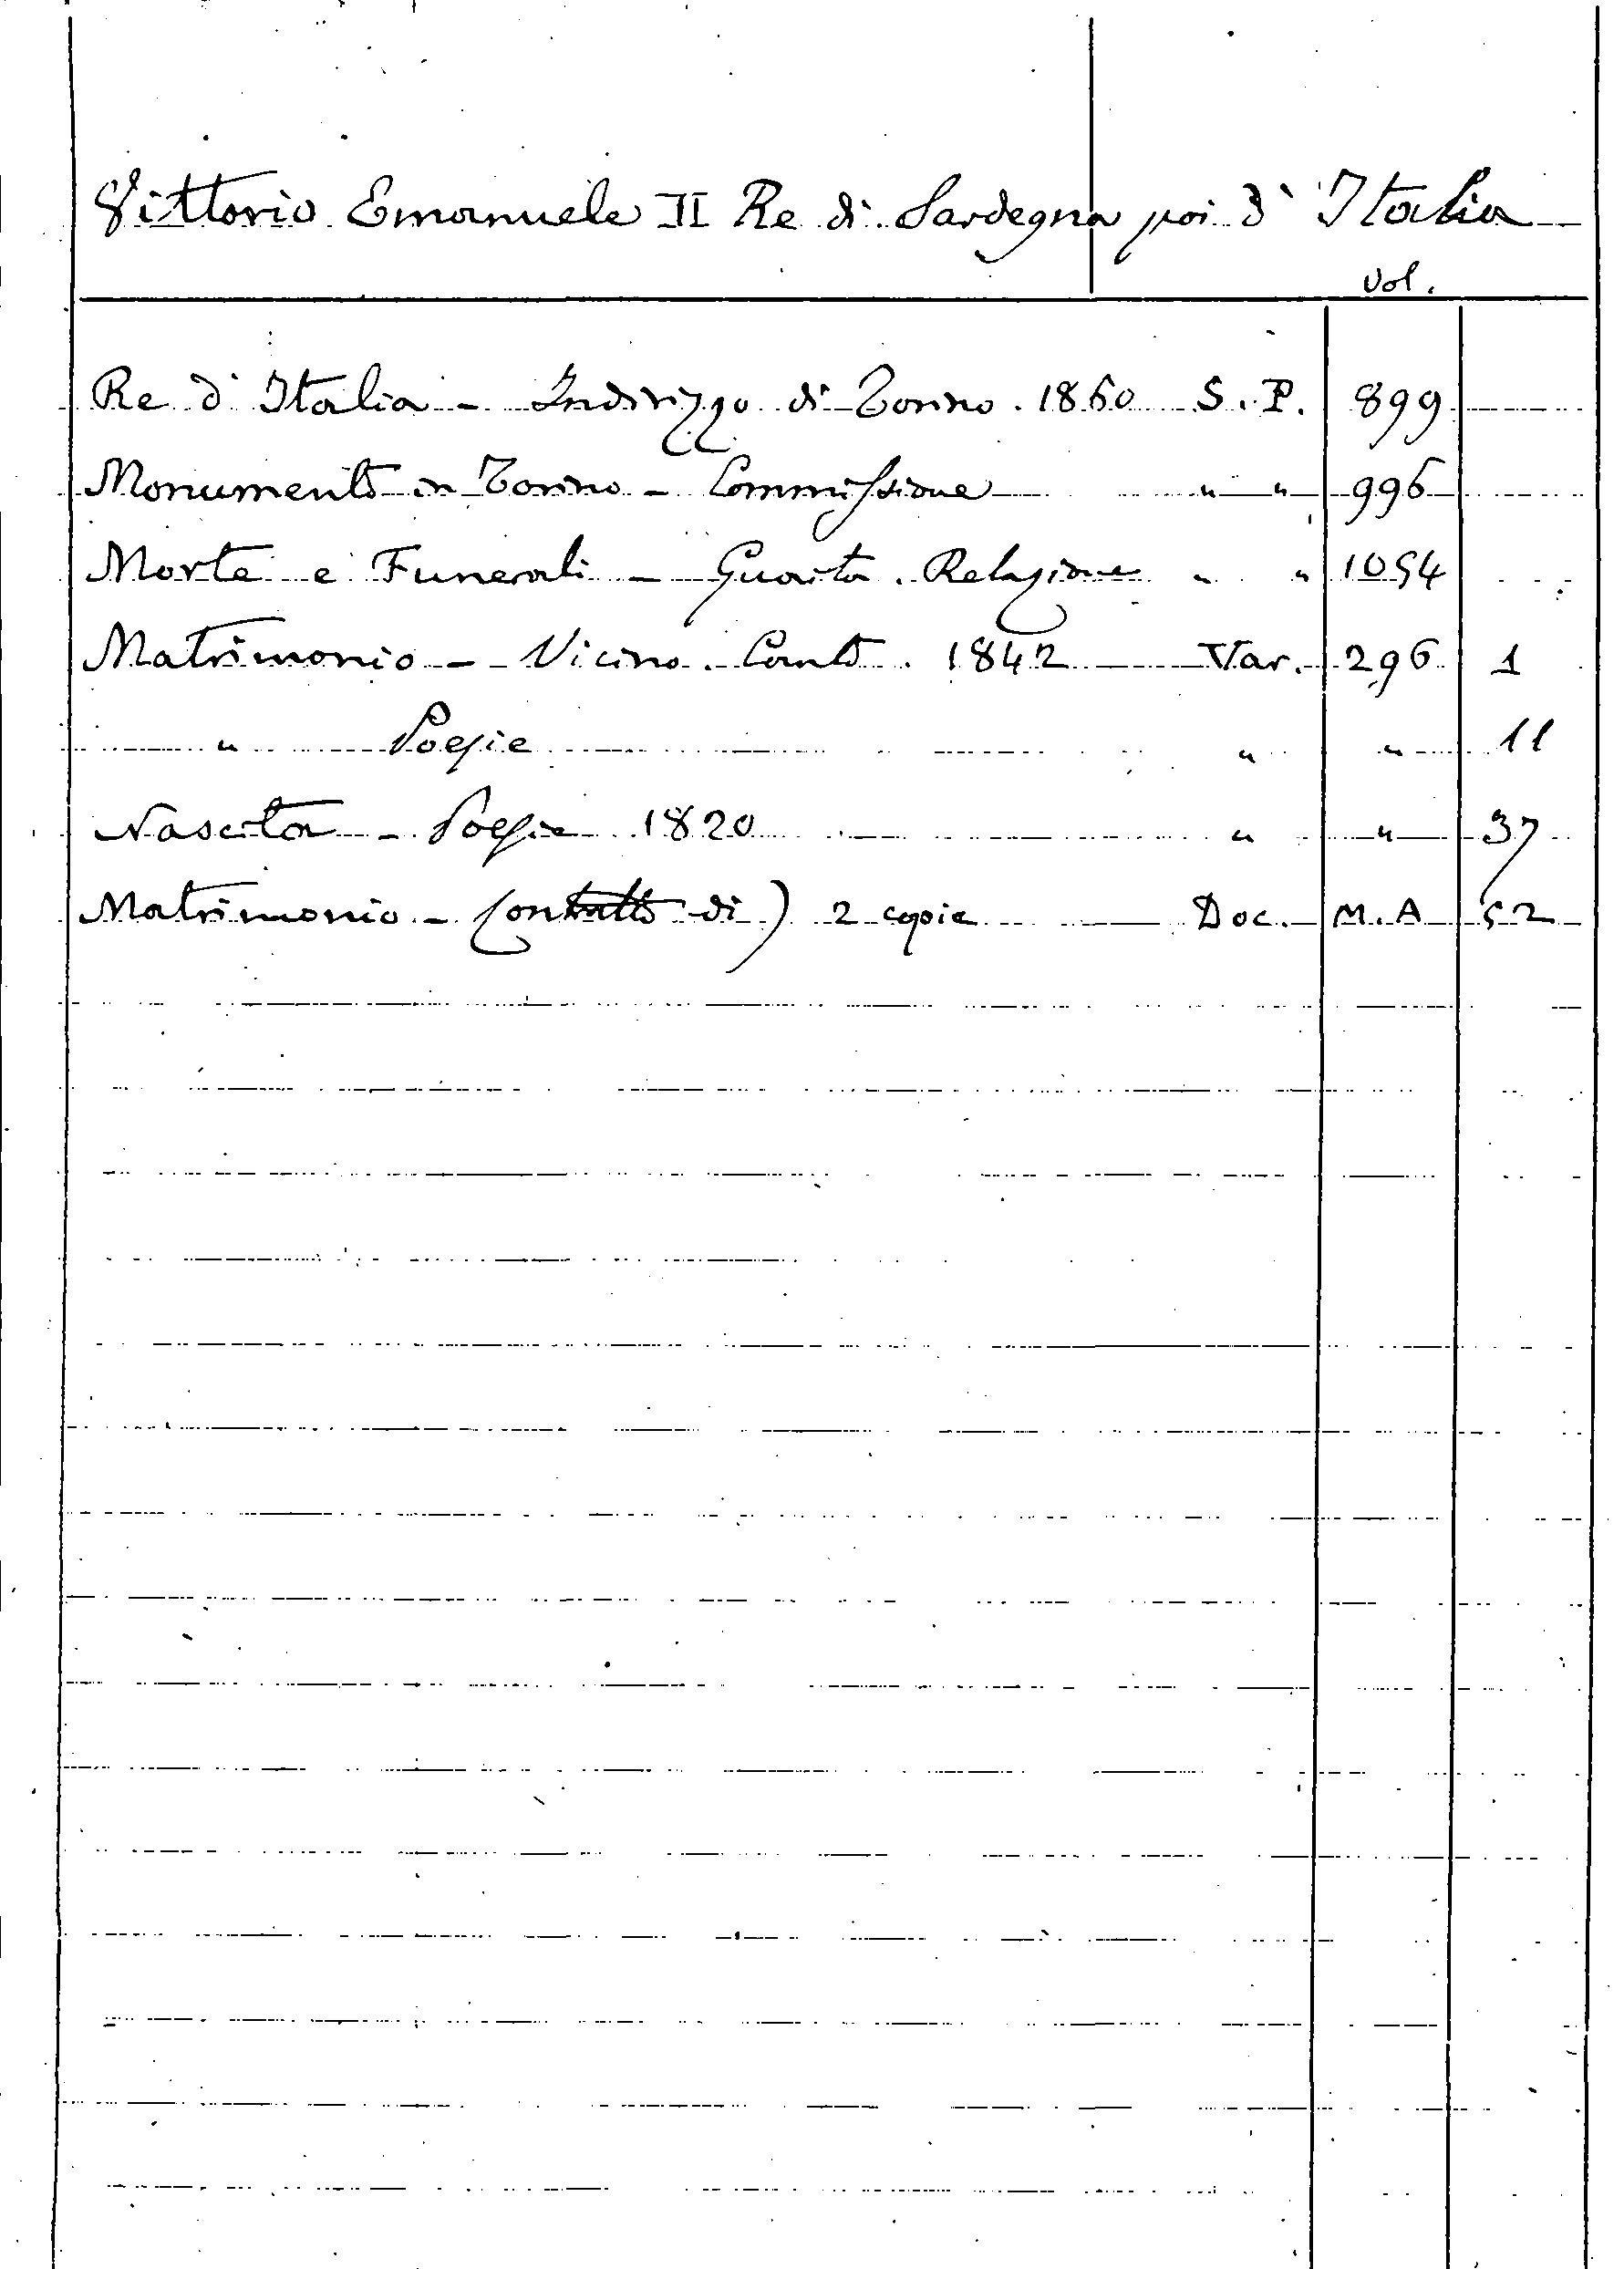 Vittorio Emanuele II Re di Sardegna poi d'Italia
Vol.
Re d'Italia - Indirizzo di Torino. 1860 S. P. 899
Monumento in Torino - Commissione " " 996
Morte e Funerali - Guaita. Relazione " " 1054
Matrimonio - Vicino. Canto. 1842 Var. 296 1
" Poesie " " 11
Nascita - Poesie 1820 " " 37
Matrimonio - (Contratto di) 2 copie Doc. M.A 52